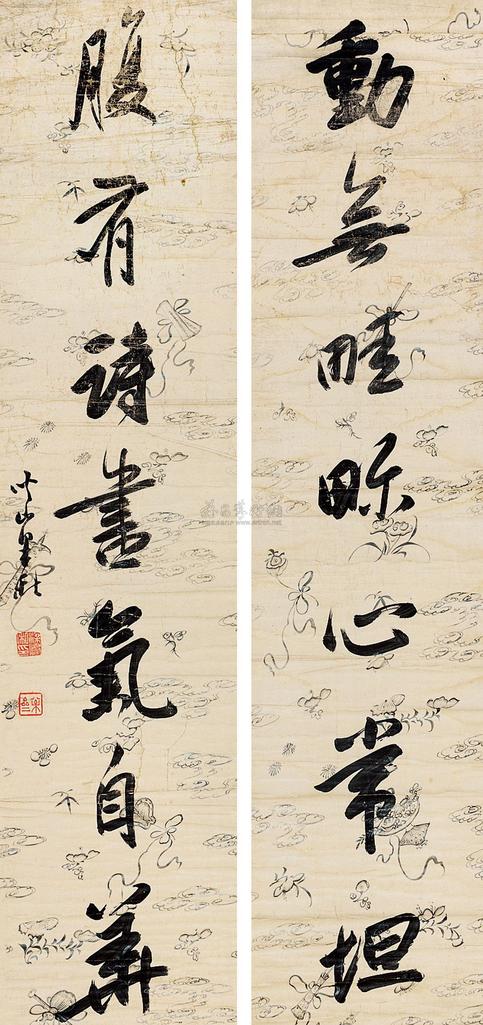 動無畦畛心常坦
腹有詩書氣自華